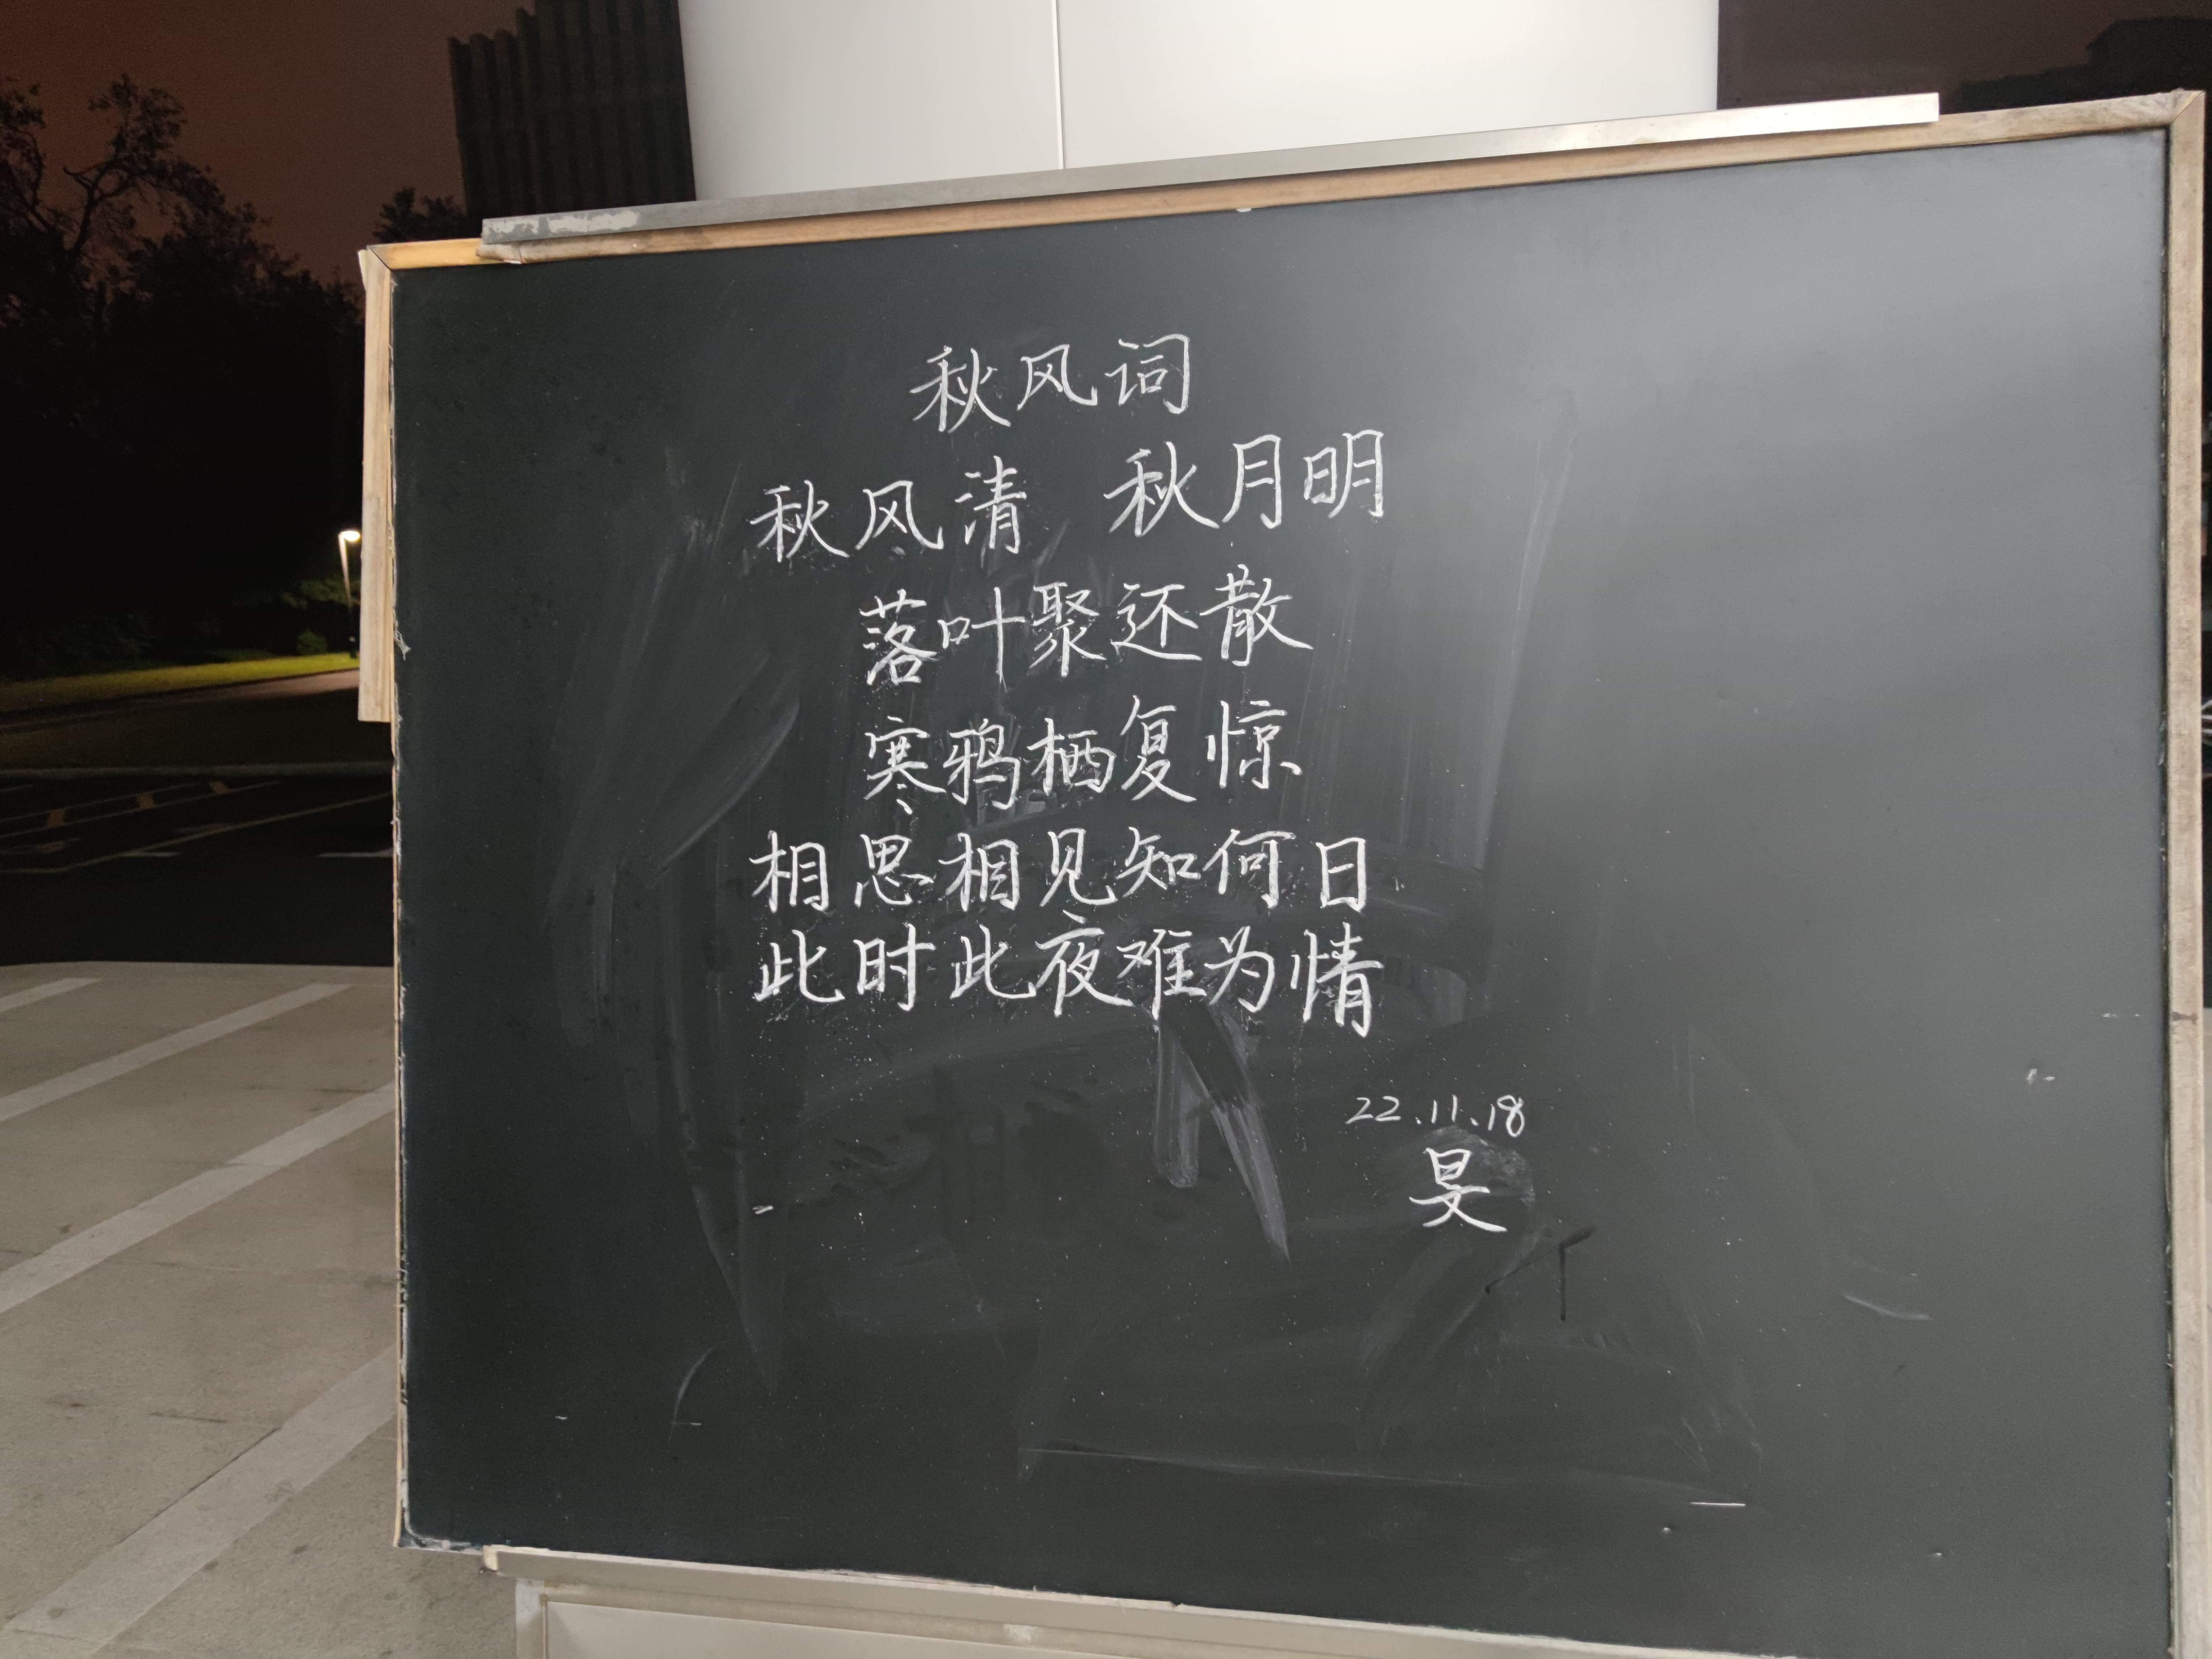 秋风词
秋风清 秋月明
落叶聚还散
寒鸦栖复惊
相思相见知何日
此时此夜难为情
22.11.18
旻